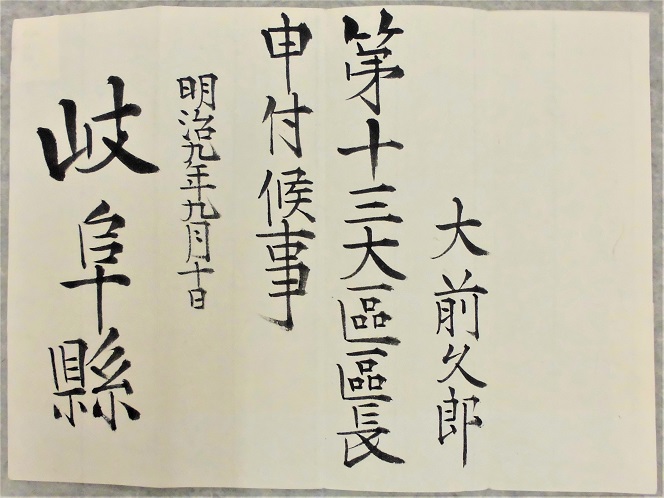 大前久郎
第十三大區區長
申付候事
明治九年九月十日
岐阜縣